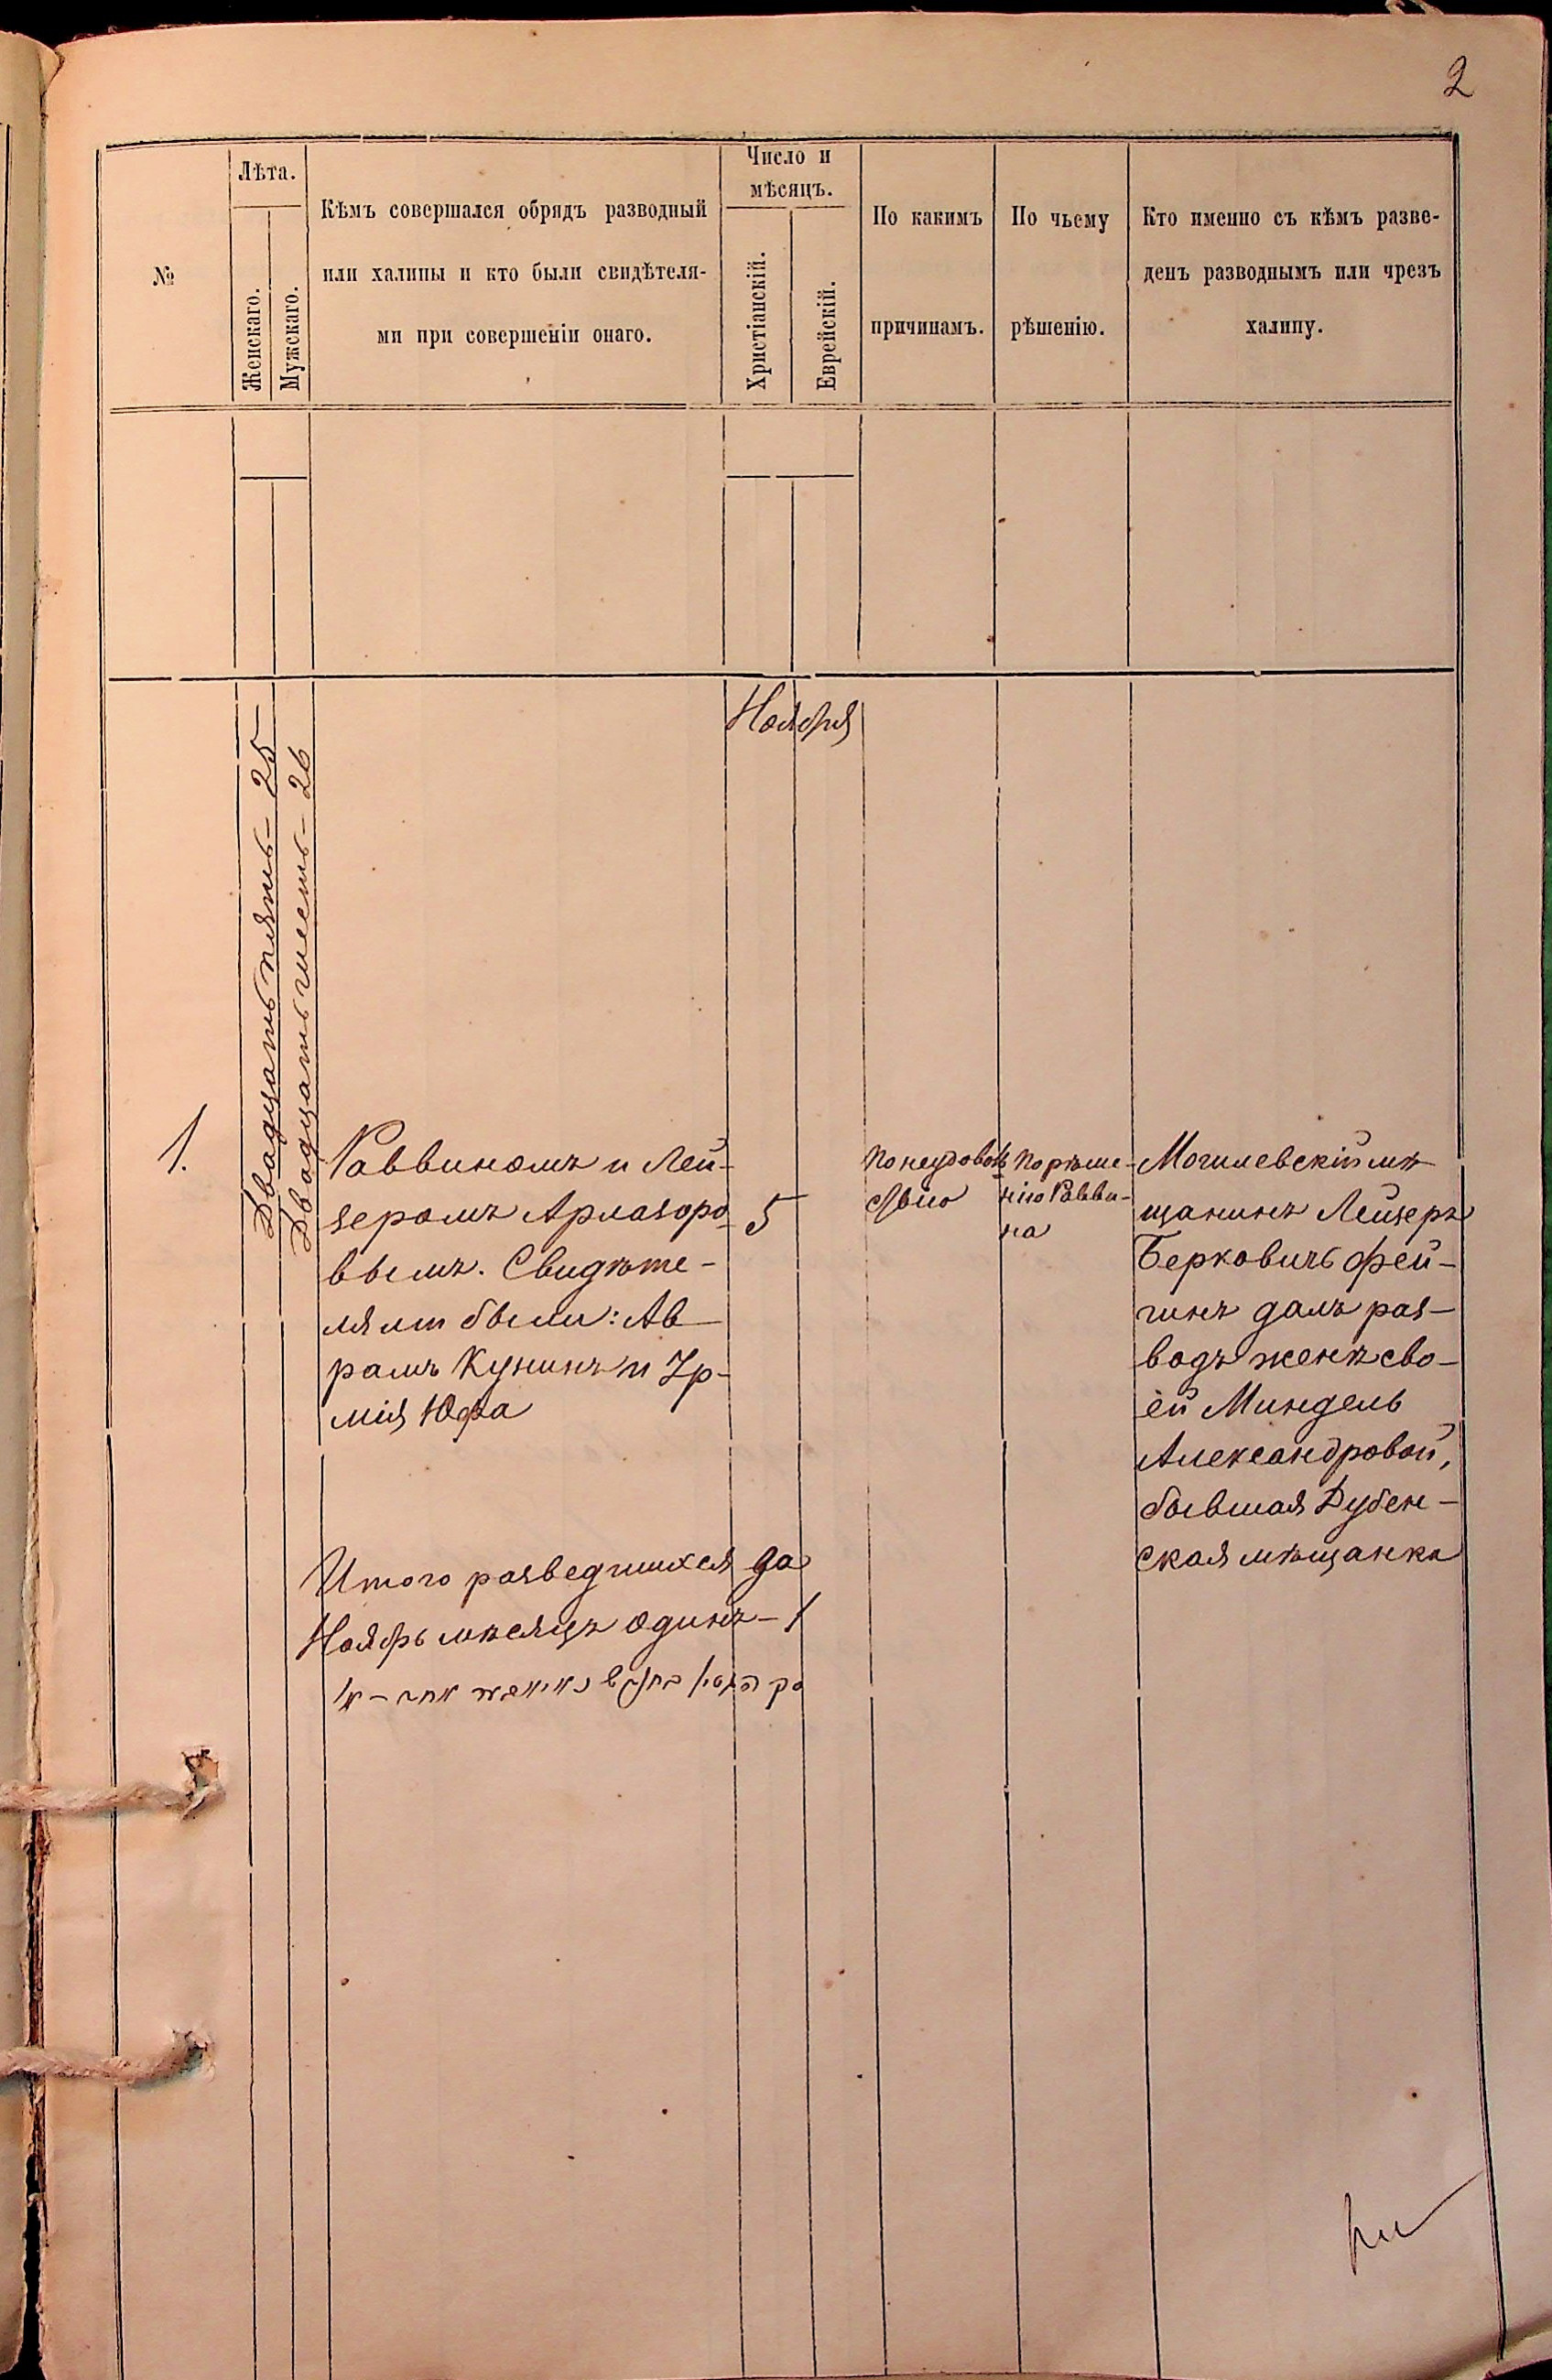 2
№
Лѣта.
Женскаго.
Мужскаго.
Кѣмъ совершался обрядъ разводный
или халицы и кто были свидѣтеля-
ми при совершеніи онаго.
Число и
мѣсяцъ.
Христіанскій.
Еврейскій.
По какимъ
причинамъ.
По чьему
рѣшенію.
Кто именно съ кѣмъ разве-
денъ разводнымъ или чрезъ
халицу.
Ноября
1.
Двадцать пять – 25
Двадцать шесть – 26
Раввиномъ и Лей-
зеромъ Арлазоро-
вымъ. Свидѣте-
лями были: Ав-
рамъ Кунинъ и Ір-
мія Юфа
5
По неудоволь-
ствію
По рѣше-
нію Равви-
на
Могилевскій мѣ-
щанинъ Лейзеръ
Берковичъ Фей-
гинъ далъ раз-
водъ женѣ сво-
ей Миндель
Александровой,
бывшая Дубен-
ская мѣщанка
Итого разведшихся за
Ноябрь мѣсяцъ одинъ – 1